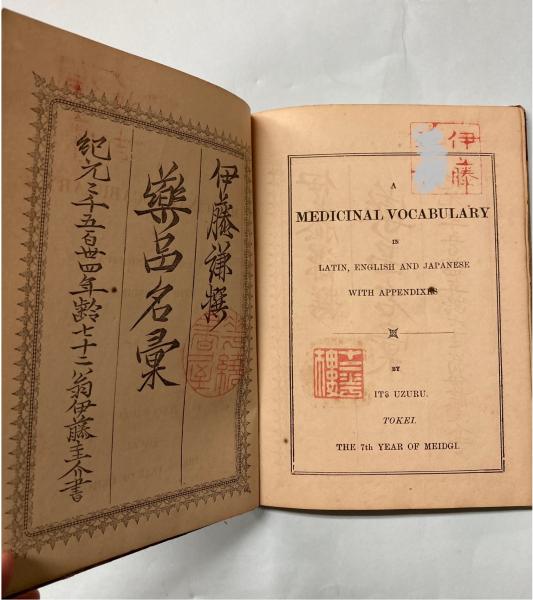 伊藤謙撰
藥品名彙
紀元二千五百卅四年齡七十二翁伊藤圭介書
伊藤
A
MEDICINAL VOCABULARY
IN
LATIN, ENGLISH AND JAPANESE
WITH APPENDIXES
BY
ITŏ UZURU.
TOKEI.
THE 7th YEAR OF MEIDGI.